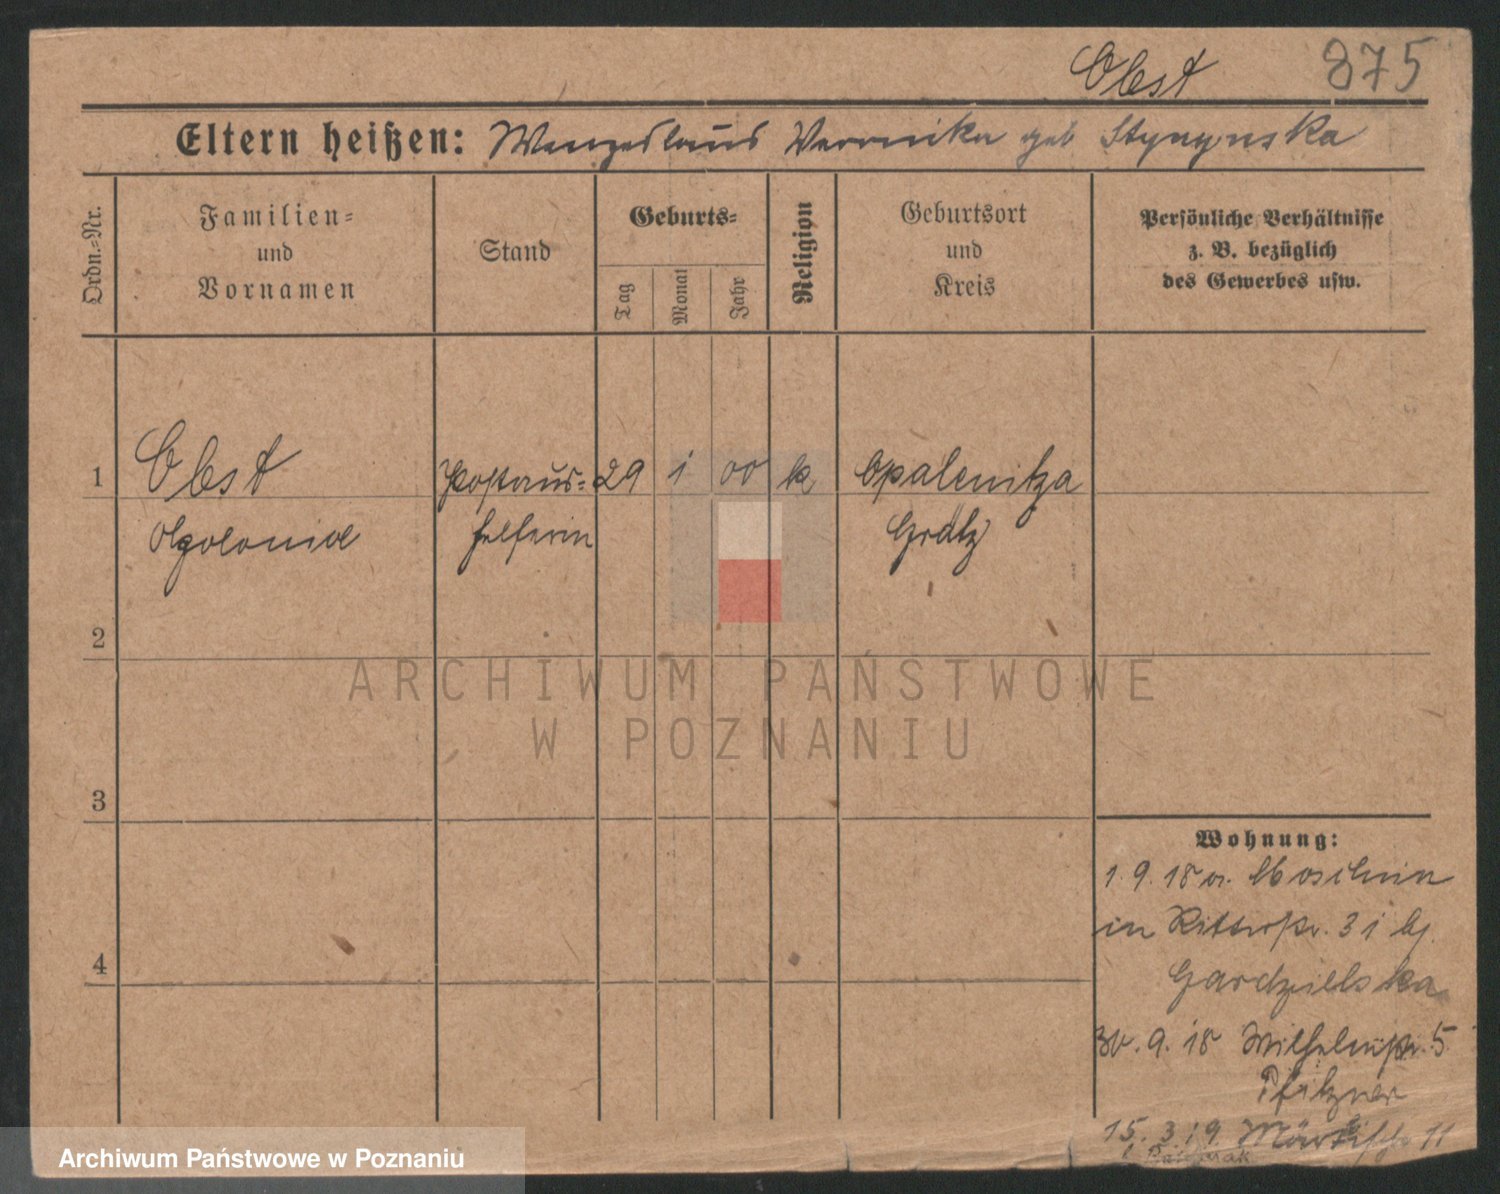 Obst 875
Eltern heißen: Wenzeslaus Veronika geb
Ordn.=Nr.
Familien=
und
Vornamen
Stand
Geburts=
Tag
Monat
Jahr
Religion
Geburtsort
und
Kreis
Persönliche Verhältnisse
z. B. bezüglich
des Gewerbes usw.
1 Obst Postaus= 29 1 00 k Opalenitza
Apolonia helferin Grätz
2
ARCHIWUM PAŃSTWOWE
W POZNANIU
3
Wohnung:
1. 9. 18 v. Moschin
in Ritterstr. 31 bj.
4
Gardzielska
30. 9. 18 Wilhelmstr. 5
Pfitzner
15. 3. 19 Märkische 11
Archiwum Państwowe w Poznaniu